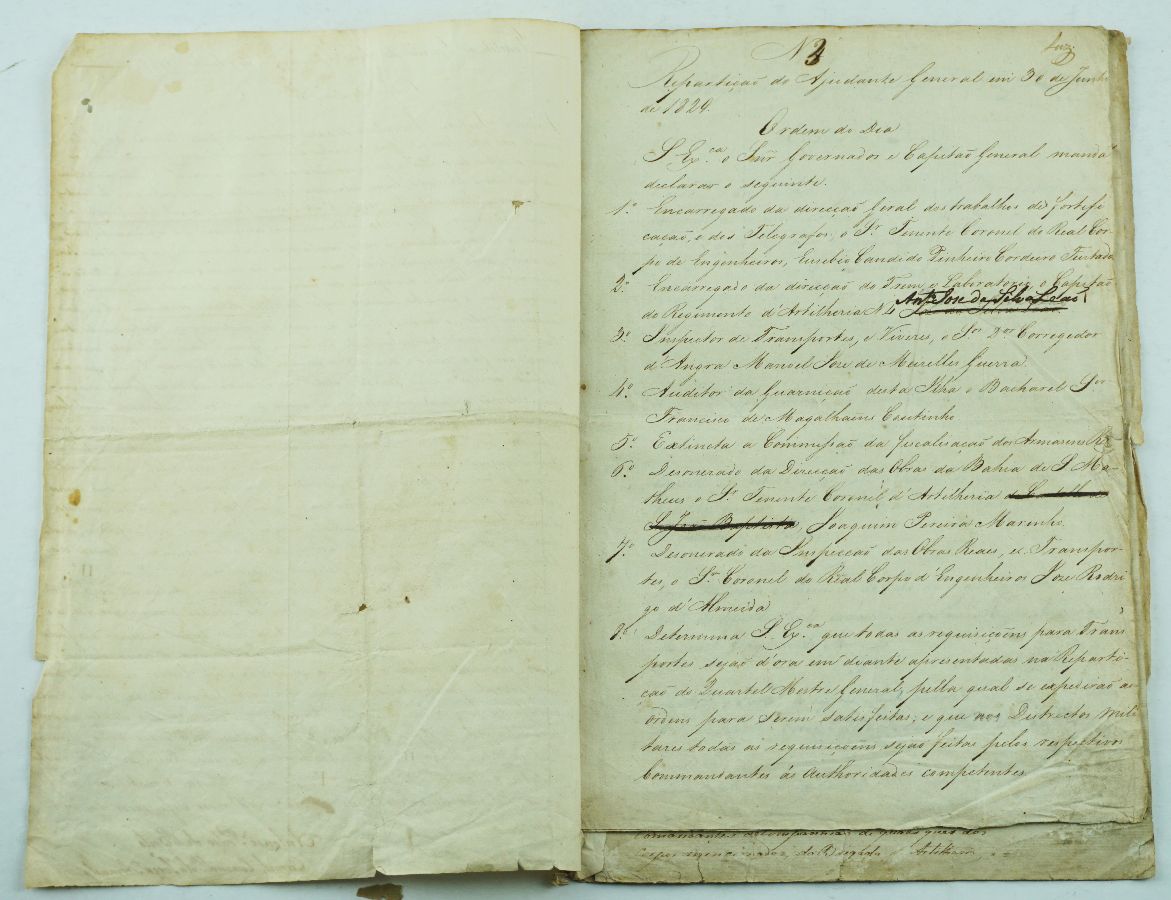 N 4
Repartição do Ajudante General em 30 de Junho
de 1824.
Ordem do Dia
S. Ex.ca o Snr. Governador e Capitão General manda
declarar o seguinte.
1.º Encarregado da direcção Geral dos trabalhos de fortifi
cação, e dos Telegrafos, o Sr. Tenente Coronel do Real Cor-
po de Engenheiros, Euzebio Candido Pinheiro Cordeiro Furtado
2.º Encarregado da direcção do Trem, e Laboratorio, o Capitão
do Regimento d'Artilheria N 4 Anto. Joze da Silva Leão
3.º Inspector de Transportes, e Viveres, o Sor. Dor. Corregedor
d'Angra Manoel Joze de Meirelles Guerra.
4.º Auditor da Guarnição desta Ilha o Bacharel Sor.
Francisco de Magalhaens Coutinho
5.º Extincta a Commissão da fiscalisação dos Armazens R.
6.º Desonerado da Direcção das Obras da Bahia de S. Ma-
theus o Sr. Tenente Coronel d'Artilheria
Joaquim Pereira Marinho.
7.º Desonerado da Inspecção das Obras Reaes, e Transpor-
tes, o Sr. Coronel do Real Corpo d'Engenheiros Joze Rodri
go d'Almeida
8.º Determina S. Ex.ca que todas as requisiçoens para Trans
portes sejão d'ora em diante apresentadas na Reparti-
ção do Quartel Mestre General, pella qual se expedirão as
ordens para serem satisfeitas; e que nos Destrictos Mili
tares todas as requisiçoens sejão feitas pelos respectivos
Commandantes ás Authoridades competentes.